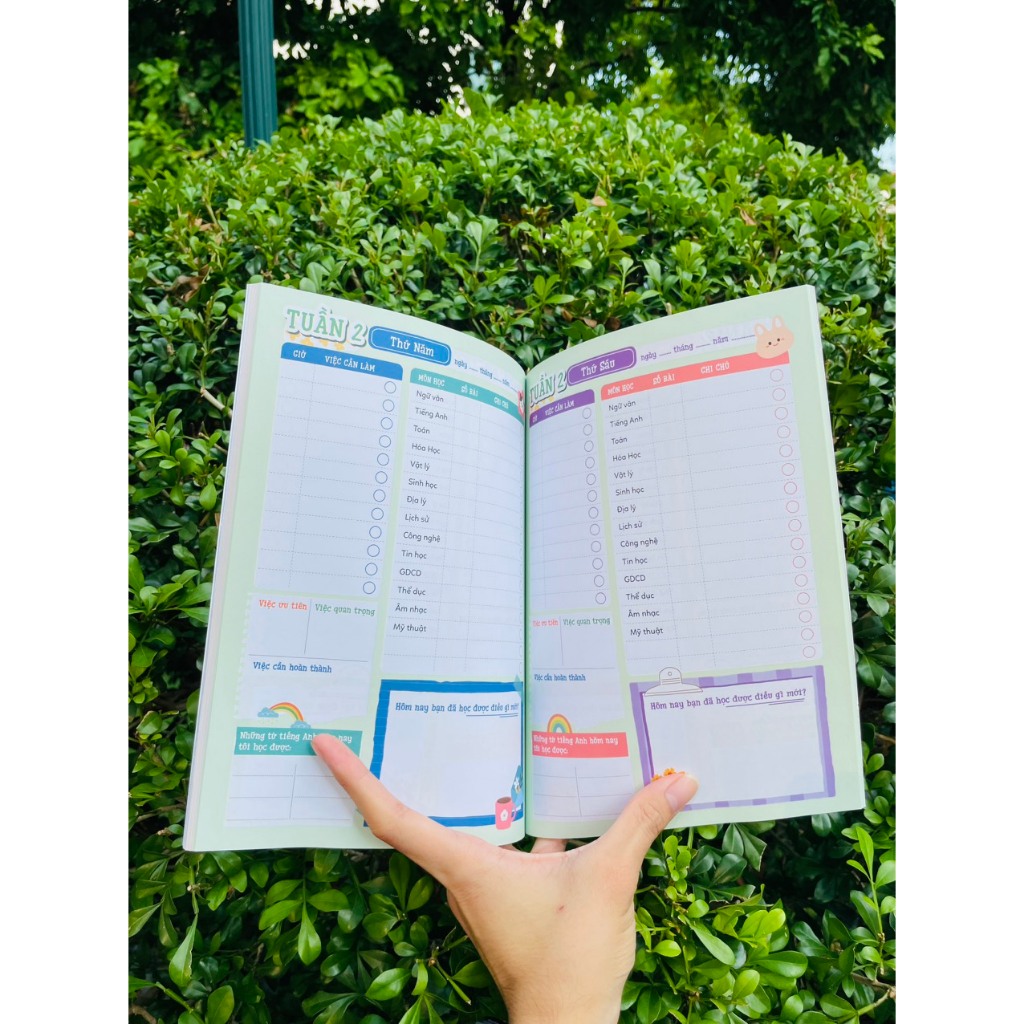 TUẦN 2
Thứ Năm
ngày ___ tháng ___ năm
GIỜ VIỆC CẦN LÀM
MÔN HỌC SỐ BÀI GHI CHÚ
Ngữ văn
Tiếng Anh
Toán
Hóa Học
Vật lý
Sinh học
Địa lý
Lịch sử
Công nghệ
Tin học
GDCD
Thể dục
Âm nhạc
Mỹ thuật
Việc ưu tiên
Việc quan trọng
Việc cần hoàn thành
Những từ tiếng Anh nay
tôi học được:
Hôm nay bạn đã học được điều gì mới?
TUẦN 2
Thứ Sáu
ngày ___ tháng ___ năm ___
GIỜ VIỆC CẦN LÀM
MÔN HỌC SỐ BÀI GHI CHÚ
Ngữ văn
Tiếng Anh
Toán
Hóa Học
Vật lý
Sinh học
Địa lý
Lịch sử
Công nghệ
Tin học
GDCD
Thể dục
Âm nhạc
Mỹ thuật
Việc ưu tiên
Việc quan trọng
Việc cần hoàn thành
Những từ tiếng Anh hôm nay
tôi học được:
Hôm nay bạn đã học được điều gì mới?